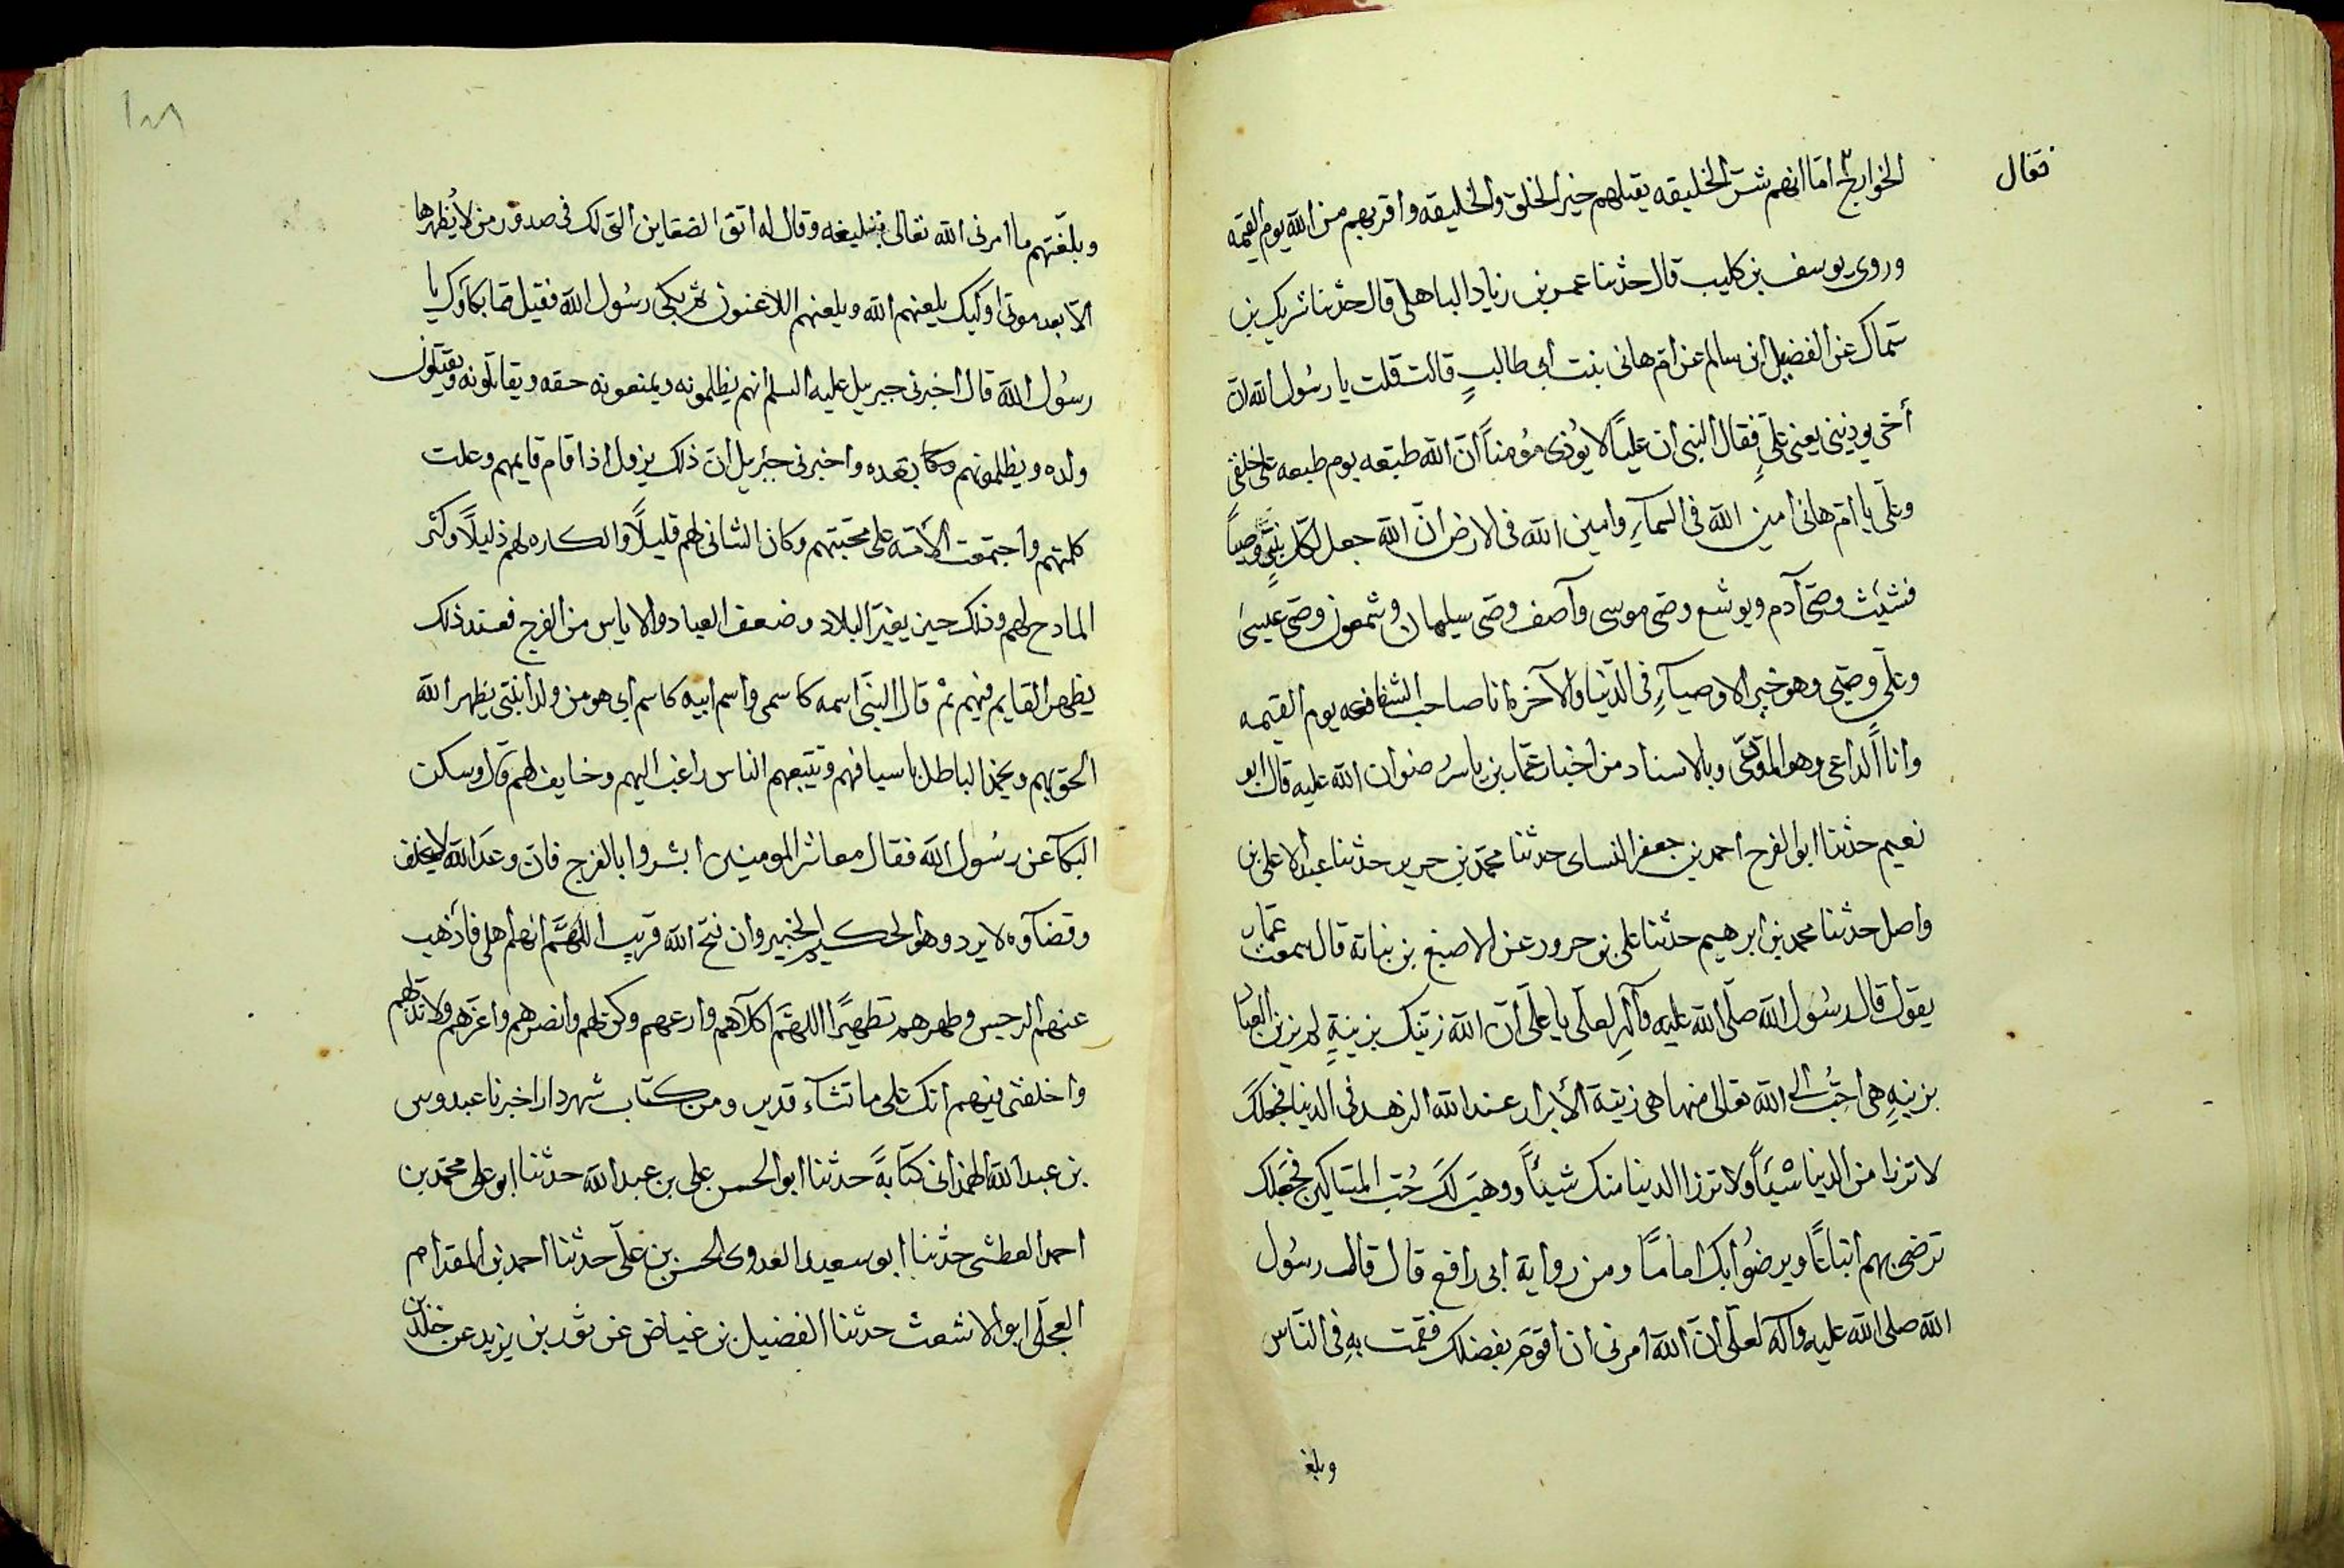 فقال
الخوارج اما انهم شر الخليقه يقتلهم خير الخلق والخليقه واقربهم من الله يوم القيمه
وروى يوسف بن كليب قال حدثنا عمر بن زياد الباهلى قال حدثنا شريك بن
سماك عن الفضيل ابن سالم عن ام هانى بنت ابى طالبٍ قالت قلت يا رسُول الله انّ
أخى يوذينى يعنى علىٍ فقال النبى ان عليّاً لا يُوذى مؤمناً انّ الله طبعه يوم طبعه على خلقى
وعلى يا ام هانى امين الله فى السمآءِ وامين الله فى الارض انّ الله جعل لكل نبىٍ وصياً
فشيث وصىّ آدم ويوشع وصى موسى وآصف وصى سليمان وشمعون وصى عيسىٰ
وعلى وصيى وهو خير الاوصيآءِ فى الدّنيا والآخرة انا صاحب الشفاعه يوم القيمه
وانا الداعى وهو المؤدّى وبالاسناد من اخبار عمّار بن ياسر رضوان الله عليه قال ابو
نعيم حدثنا ابو الفرج احمد بن جعفر النساى حدثنا محمّد بن جرير حدثنا عبد الاعلى بن
واصل حدثنا محمد بن ابرهيم حدثنا على بن حرور عن الاصبغ بن نباتة قال سمعت عمّار
يقول قال رسُول الله صلّى الله عليه وآلهِ لعلى يا على انّ الله زيّنك بزينةٍ لم يزين العباد
بزينهِ هى احبُّ الى الله تعالى منها هى زينة الأبرار عند الله الزهد فى الدنيا فجعلك
لا ترزا من الدنيا شيئاً ولا ترزا الدنيا منك شيئاً ووهبَ لكَ حُبّ المساكين فجَعَلك
ترضى بهم اتباعًا ويرضُوا بك امامًا ومن رواية ابى رافع قال قال رسُول
الله صلى الله عليه وآله لعلى انّ الله امرنى ان اقوم بفضلك فقمت بهِ فى النّاس
وبلغ
١٠٨
وبلّغتهم ما امرنى الله تعالى بتبليغه وقال له اتق الضغاين التى لك فى صدور من لا يُظهرها
الا بعد موتى اوليك يلعنهم الله ويلعنهم اللاعنون ثم بكى رسُول الله فقيل مما بكاؤك يا
رسُول الله قال اخبرنى جبريل عليه السلم انهم يظلمونه ويمنعونه حقه ويقاتلونه ويقتلون
ولده ويظلمونهم بعده واخبرنى جبريل انّ ذلك يزول اذا قام قايمهم وعلت
كلمتهم واجتمعت الأمّة على محبّتهم وكان الشانى لهم قليلًا والكاره لهم ذليلًا وكثر
المادح لهم وذلك حين يغيّر البلاد وضعف العباد والاياس من الفرج فعند ذلك
يظهر القايم فيهم ثم قال النبى اسمه كاسمى واسم ابيه كاسم ابى هو من ولد ابنتى يظهر الله
الحق بهم ويخمد الباطل باسيافهم وتتبعهم الناس راغب اليهم وخايف لهم قال وسكن
البكآ عن رسُول الله فقال معاشر المومنين ابشروا بالفرج فانّ وعدَ الله لا يخلف
وقضآوه لا يرد وهو الحكيم الخبير وان فتح الله قريب اللهمّ انهم اهلى فأذهب
عنهم الرجس وطهرهم تطهيرًا اللهمّ اكلأهم وارعهم وكن لهم وانصرهم واعزّهم ولا تذلهم
واخلفنى فيهم انك على ما تشآء قدير ومن كتاب شهردار اخبرنا عبدوس
بن عبد الله الهمذانى كتابةً حدثنا ابو الحسن على بن عبد الله حدثنا ابو على محمّد بن
احمد العطشى حدثنا ابو سعيد العدوى الحسن بن على حدثنا احمد بن المقدام
العجلى ابو الاشعث حدثنا الفضيل بن عياض عن ثور بن يزيد عن خلد بن